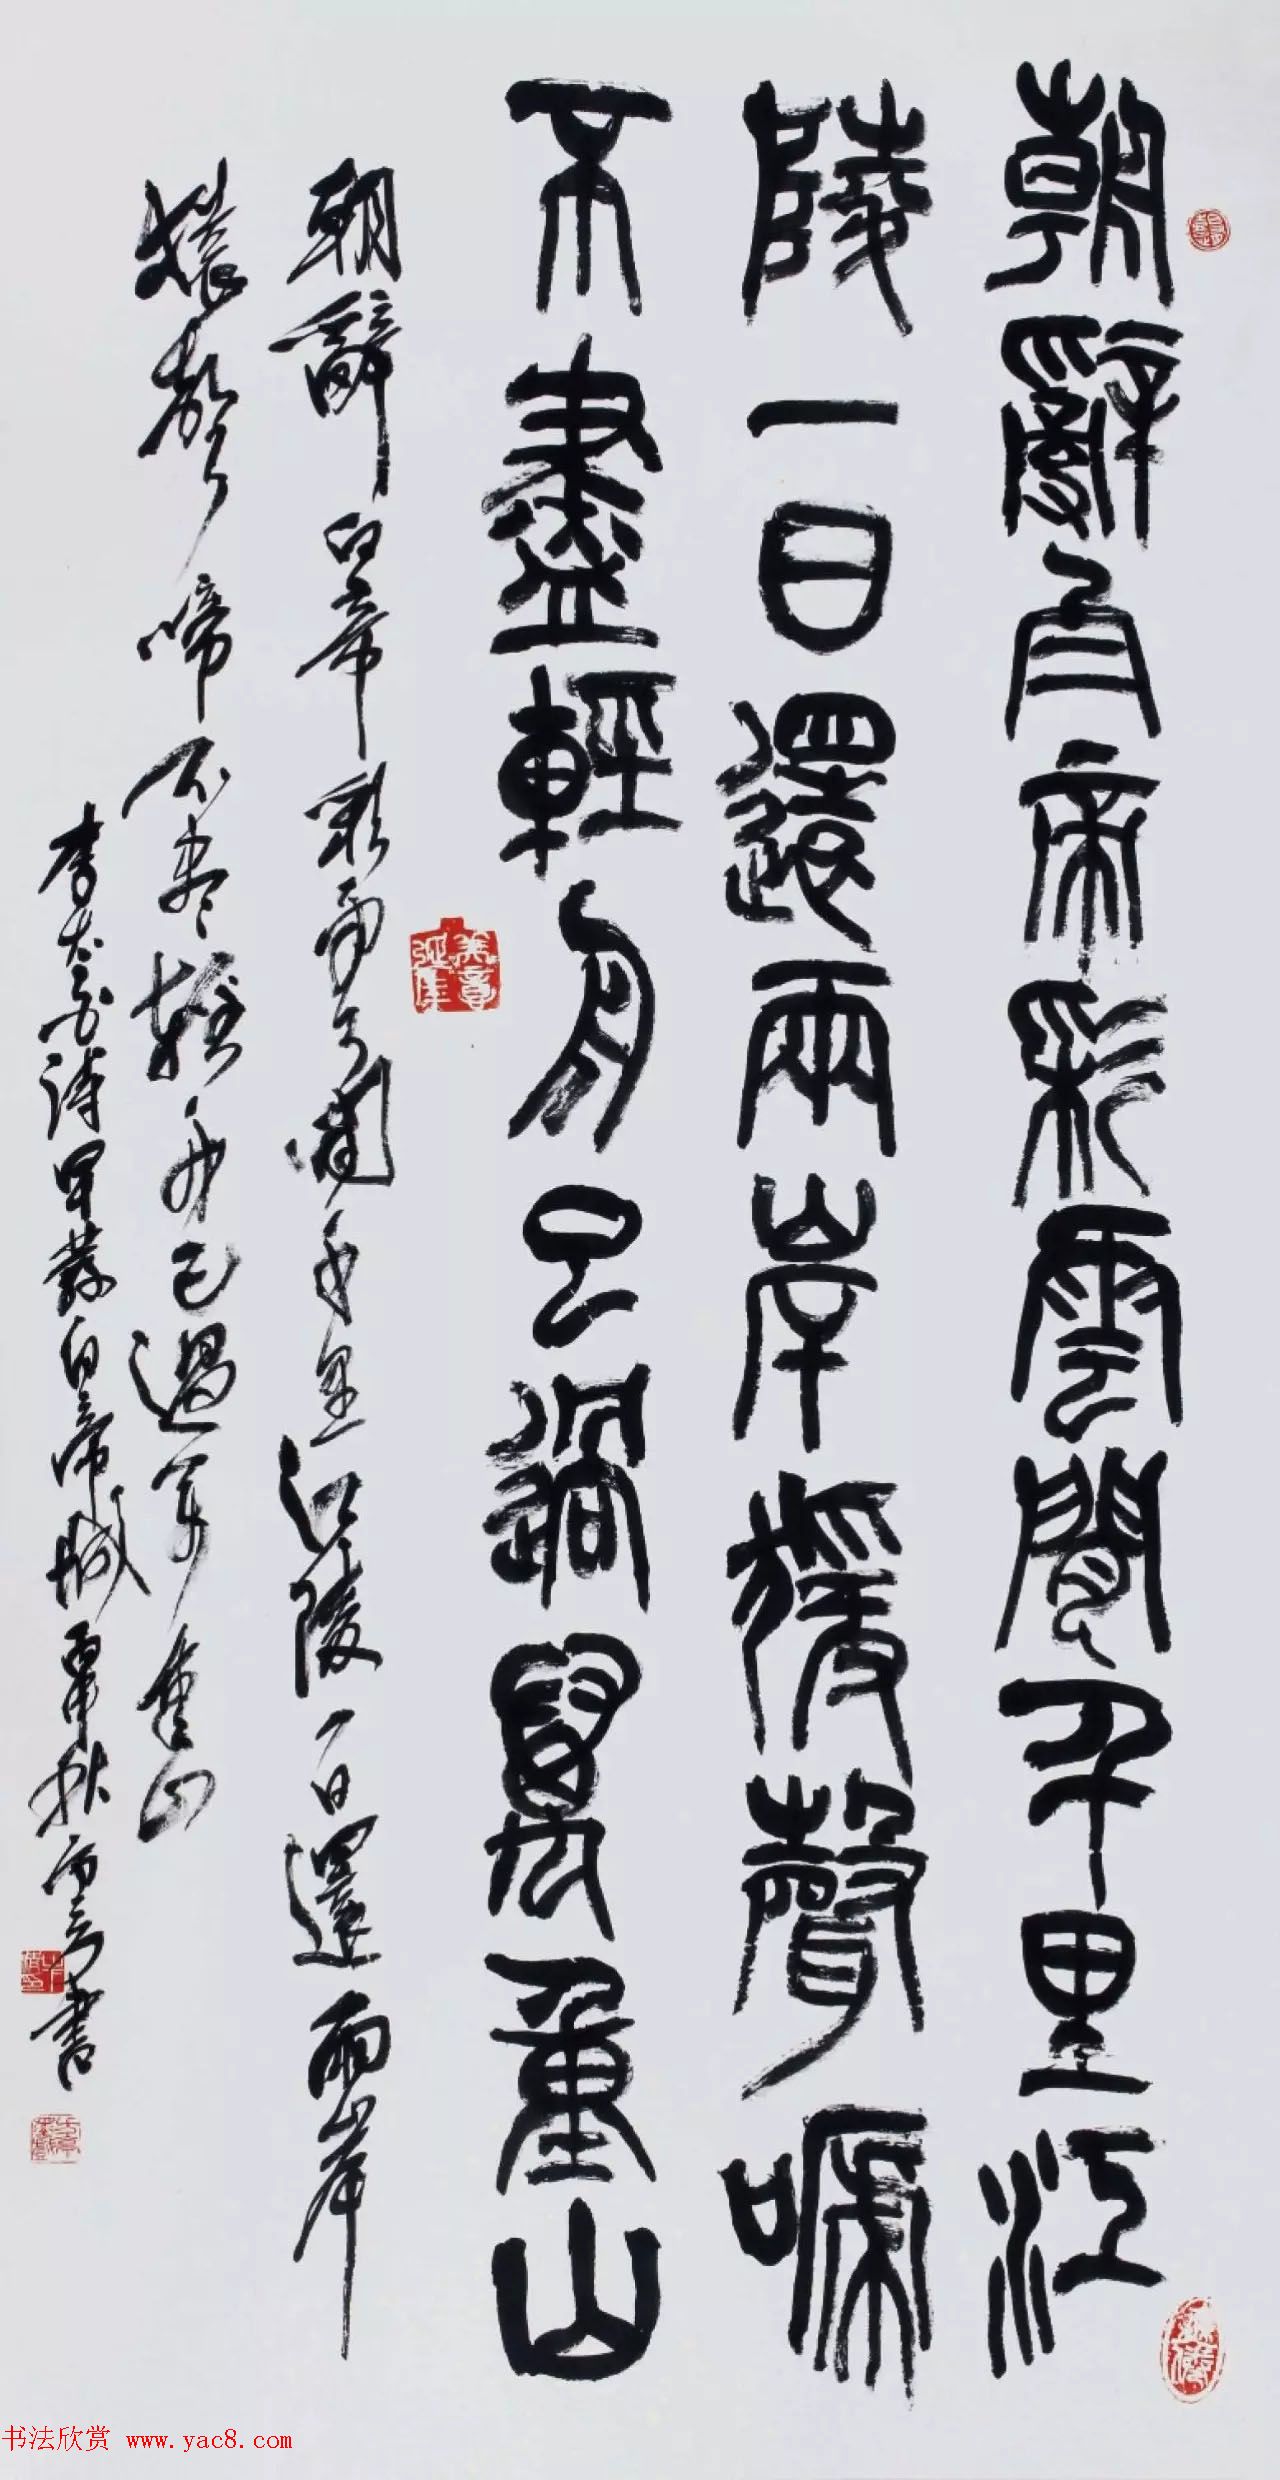 朝辭白帝彩雲閒千里江
陵一日還兩岸猨聲嗁
不盡輕舟已過萬重山
朝辭白帝彩雲間千里江陵一日還兩岸
猿聲啼不盡輕舟已過萬重山
李太白詩早發白帝城丙申秋雨亭書
书法欣赏 www.yac8.com